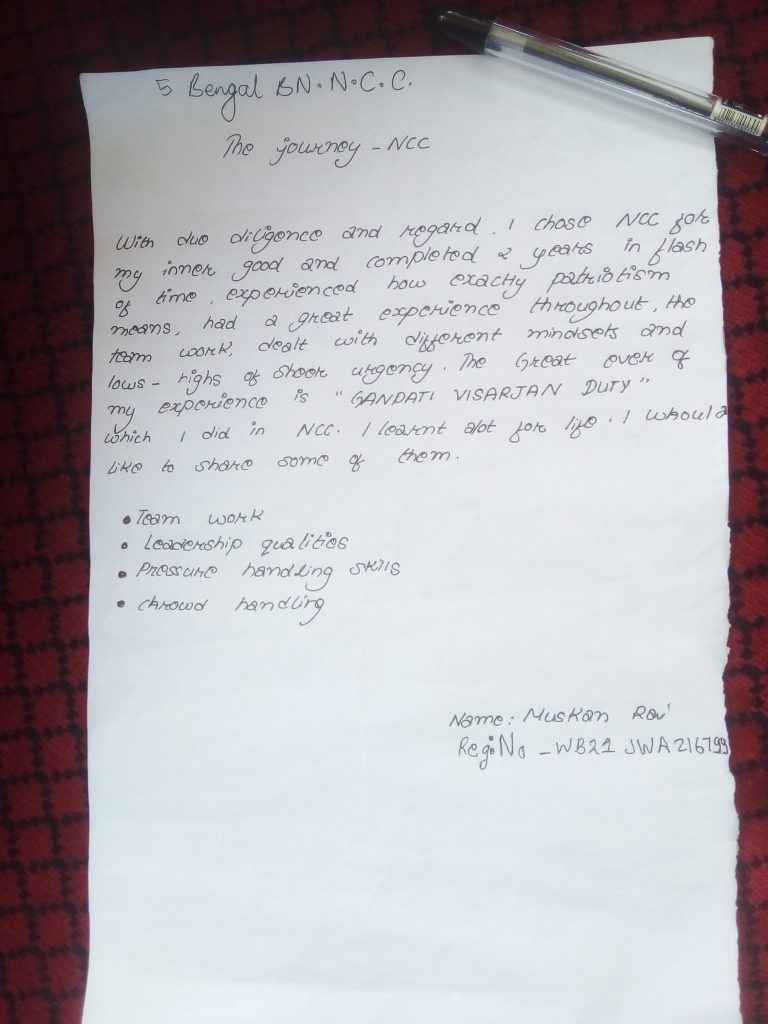 5 Bengal BN.N.C.C.
The journey - NCC
With due diligence and regard. I chose NCC for
my inner good and completed 2 years in flash
of time, experienced how exactly patriotism
means, had a great experience throughout, the
team work, dealt with different mindsets and
lows - highs of sheer urgency. The Great ever of
my experience is "GANPATI VISARJAN DUTY"
which I did in NCC. I learnt alot for life. I whould
like to share some of them.
• Team work
• Leadership qualities
• Pressure handling skills
• Chrowd handling
Name: Muskan Rai
Reg:No - WB21 JWA216799